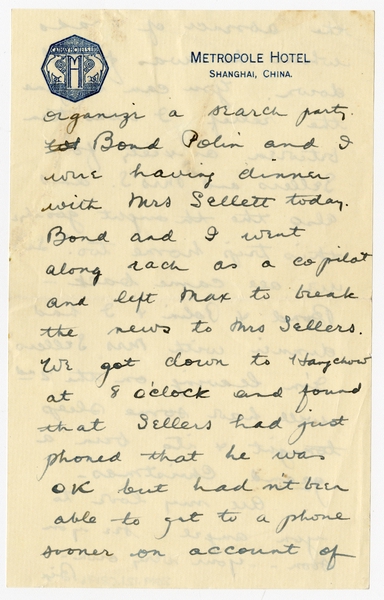 CATHAY HOTELS LTD
M
METROPOLE HOTEL
SHANGHAI, CHINA.
organize a search party.
Bond Polin and I
were having dinner
with Mrs Sellett today.
Bond and I went
along each as a copilot
and left Max to break
the news to Mrs Sellers.
We got down to Hangchow
at 8 o'clock and found
that Sellers had just
phoned that he was
OK but hadn't been
able to get to a phone
sooner on account of